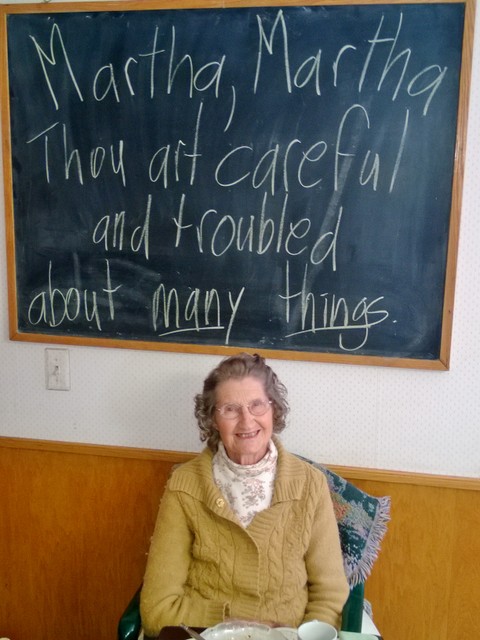 Martha, Martha
Thou art careful
and troubled
about many things.